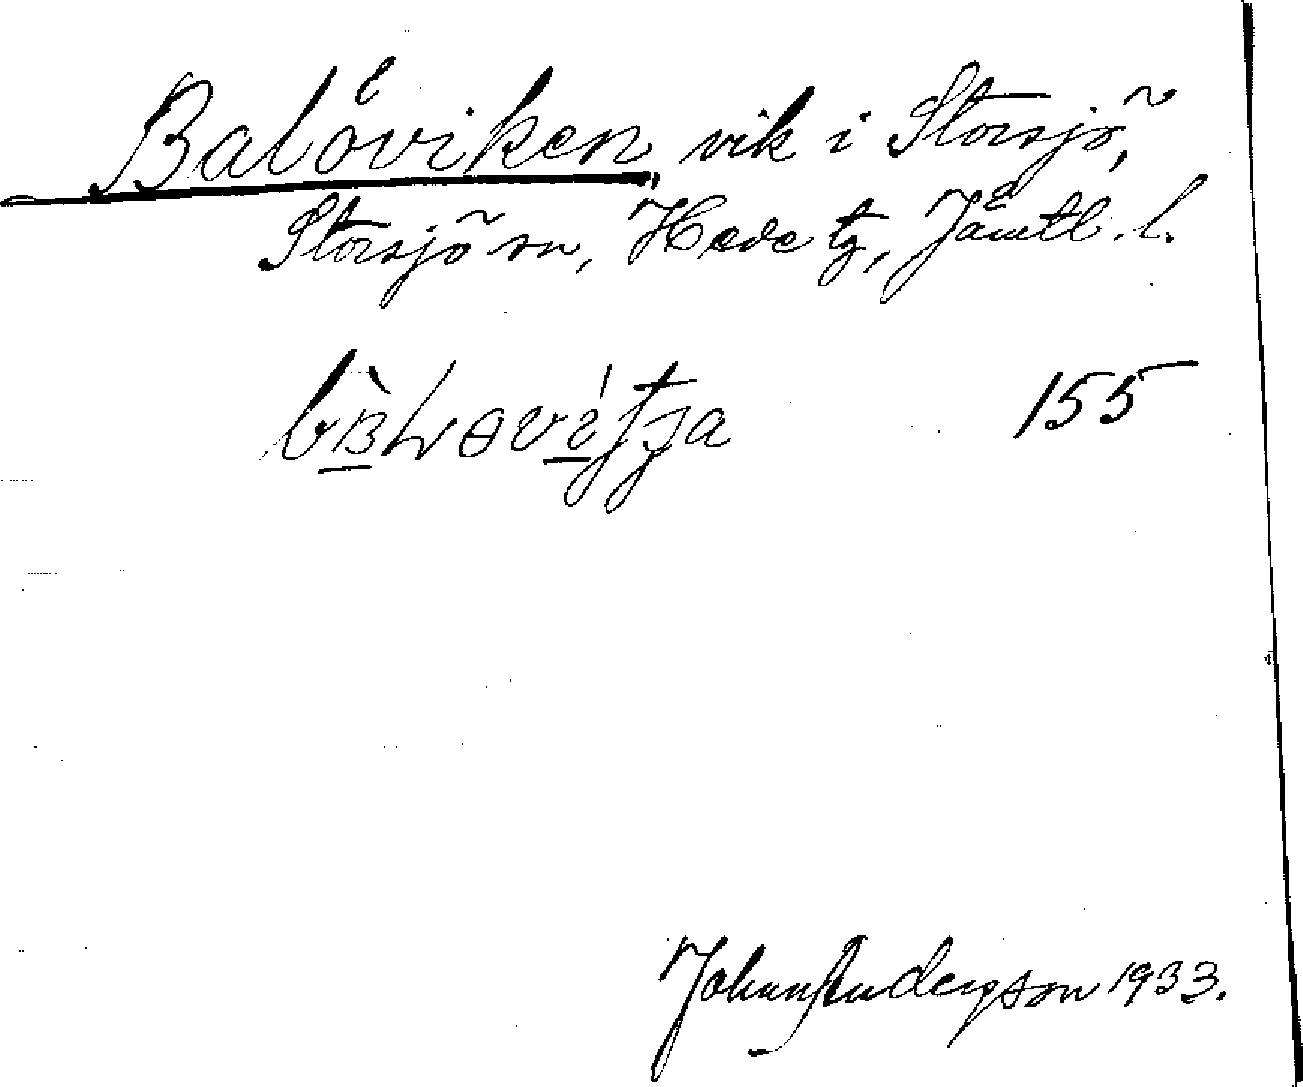 Balöviken, vik i Storsjö,
Storsjö sn, Hede tg, Jämtl. l.
155
Johan Anderson 1933.